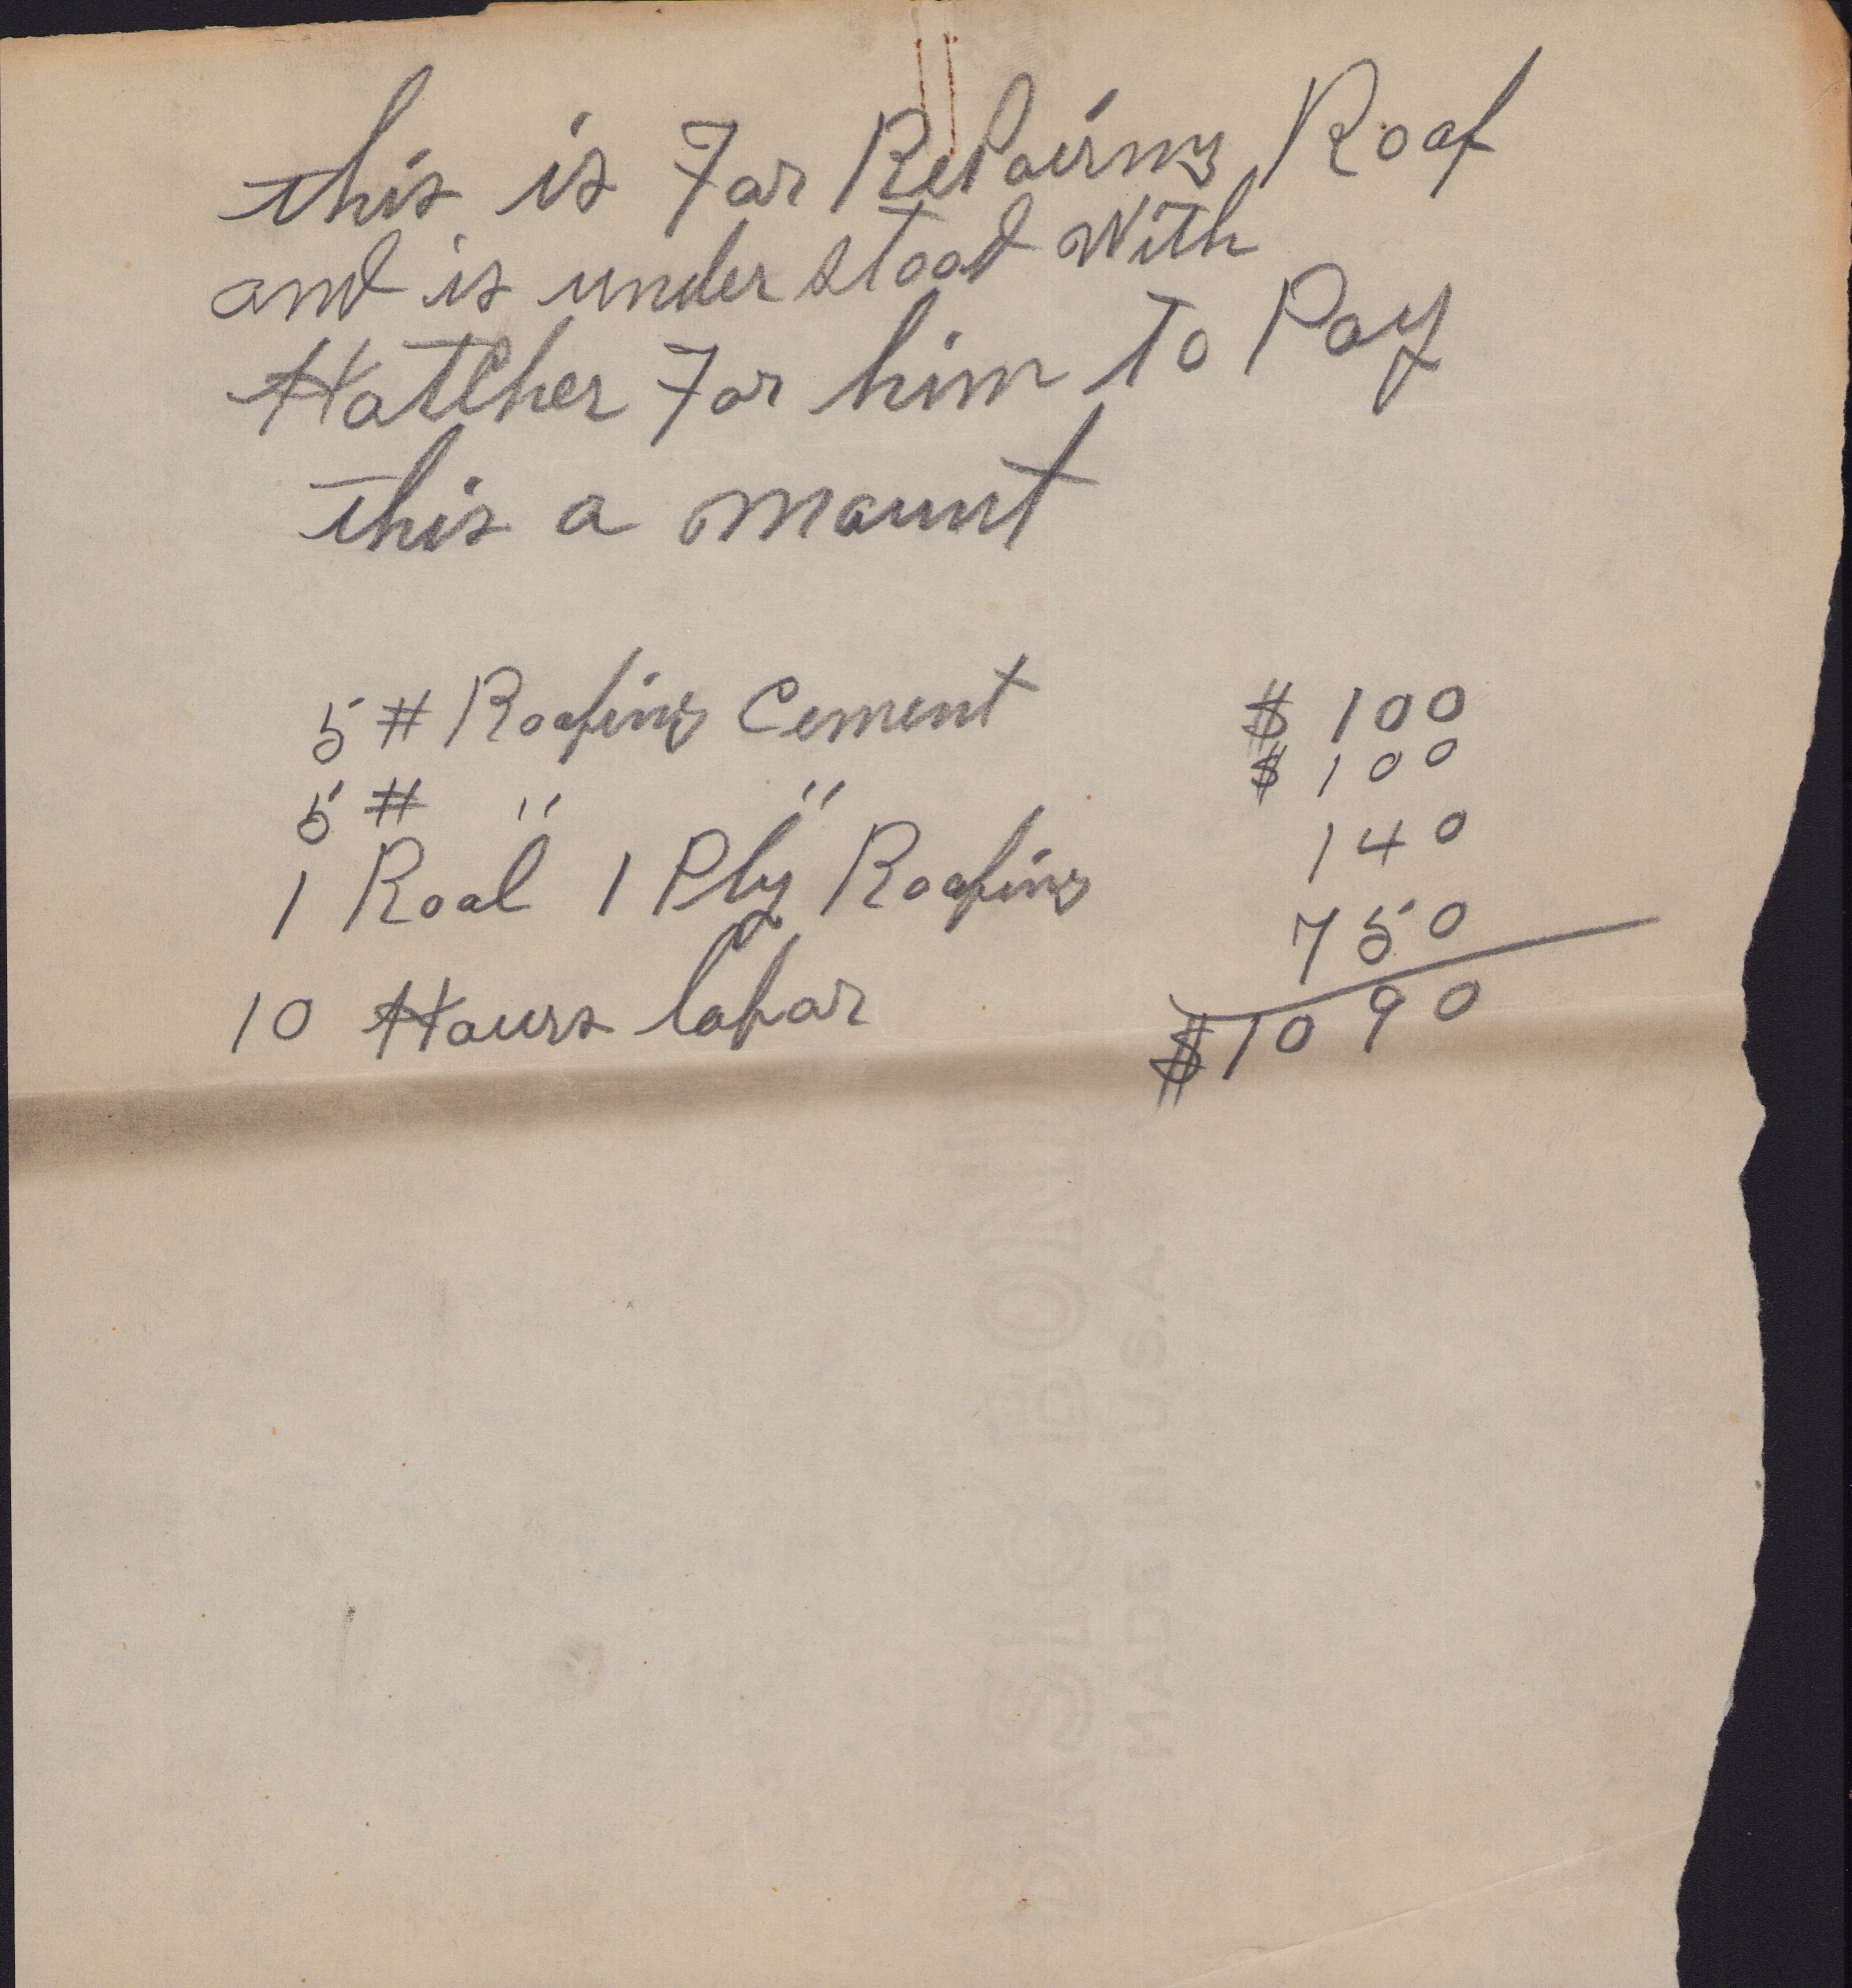 this is For RePairing Roof
and is under stood With
Hatcher For him To Pay
this a mount
5 # Roofing Cement $ 100
5 # " " $ 100
1 Rool 1 Ply Roofing 140
10 Hours labor 750
$1090
BASIC BOND
MADE IN U.S.A.